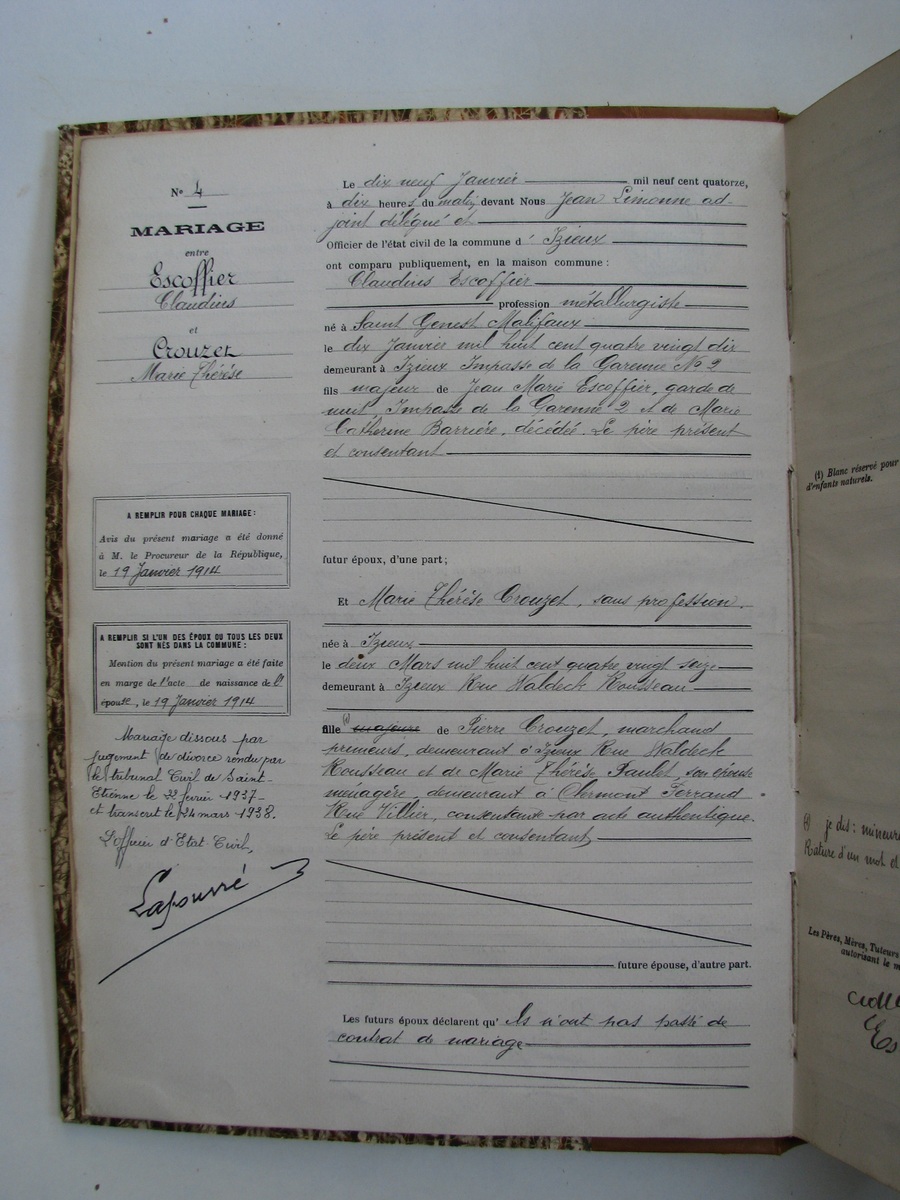 N° 4
MARIAGE
entre
Escoffier
Claudius
et
Crouzet
Marie Thérèse
A REMPLIR POUR CHAQUE MARIAGE :
Avis du présent mariage a été donné
à M. le Procureur de la République,
le 19 Janvier 1914
A REMPLIR SI L'UN DES ÉPOUX OU TOUS LES DEUX
SONT NÉS DANS LA COMMUNE :
Mention du présent mariage a été faite
en marge de l'acte de naissance de l'
épouse, le 19 Janvier 1914
Mariage dissous par
jugement de divorce rendu par
le tribunal Civil de Saint-
Etienne le 22 février 1937
et transcrit le 24 mars 1938.
L'officier d'Etat-Civil,
Le dix neuf Janvier mil neuf cent quatorze,
à dix heures du matin, devant Nous Jean Limonne ad-
joint délégué et
Officier de l'état civil de la commune d' Izieux
ont comparu publiquement, en la maison commune :
Claudius Escoffier
profession métallurgiste
né à Saint Genest Malifaux
le dix Janvier mil huit cent quatre vingt dix
demeurant à Izieux Impasse de la Garenne N° 2
fils majeur de Jean Marie Escoffier, garde de
nuit, Impasse de la Garenne 2 et de Marie
Catherine Barrière, décédée. Le père présent
et consentant
futur époux, d'une part ;
Et Marie Thérèse Crouzet, sans profession.
née à Izieux
le deux Mars mil huit cent quatre vingt seize
demeurant à Izieux Rue Waldeck Rousseau
fille (1) majeure de Pierre Crouzet, marchand
primeurs, demeurant à Izieux Rue Waldeck
Rousseau et de Marie Thérèse Paulet, son épouse
ménagère, demeurant à Clermont Ferrand
Rue Villier, consentante par acte authentique.
Le père présent et consentant
future épouse, d'autre part.
Les futurs époux déclarent qu' ils n'ont pas passé de
contrat de mariage
(1) Blanc réservé pour
d'enfants naturels.
(1) je dis : mineure
Rature d'un mot
Les Pères, Mères, Tuteurs
autorisant le